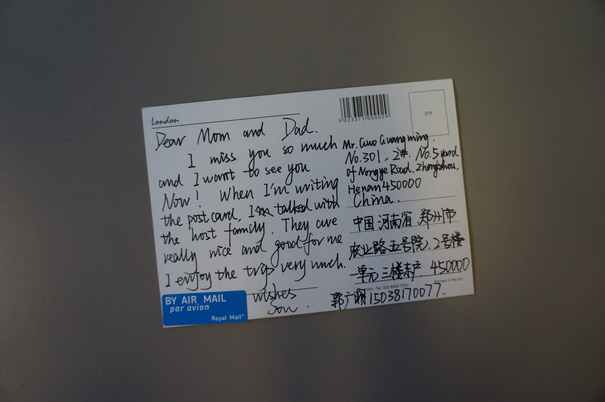 London
Dear Mom and Dad.
I miss you so much
and I want to see you
Now! When I'm writing
the post card, I'm talked with
the host family. They are
really nice and good for me
I enjoy the trip very much.
wishes
Son.
BY AIR MAIL
par avion
Royal Mail
5023371000025
Mr. Guo Guangming.
No.301, 2#. No.5 yard
of Nongye Road. Zhengzhou,
Henan 450000
China.
中国 河南省 郑州市
农业路五号院,2号楼
一单元三楼东户. 450000
郭广明 15038170077.